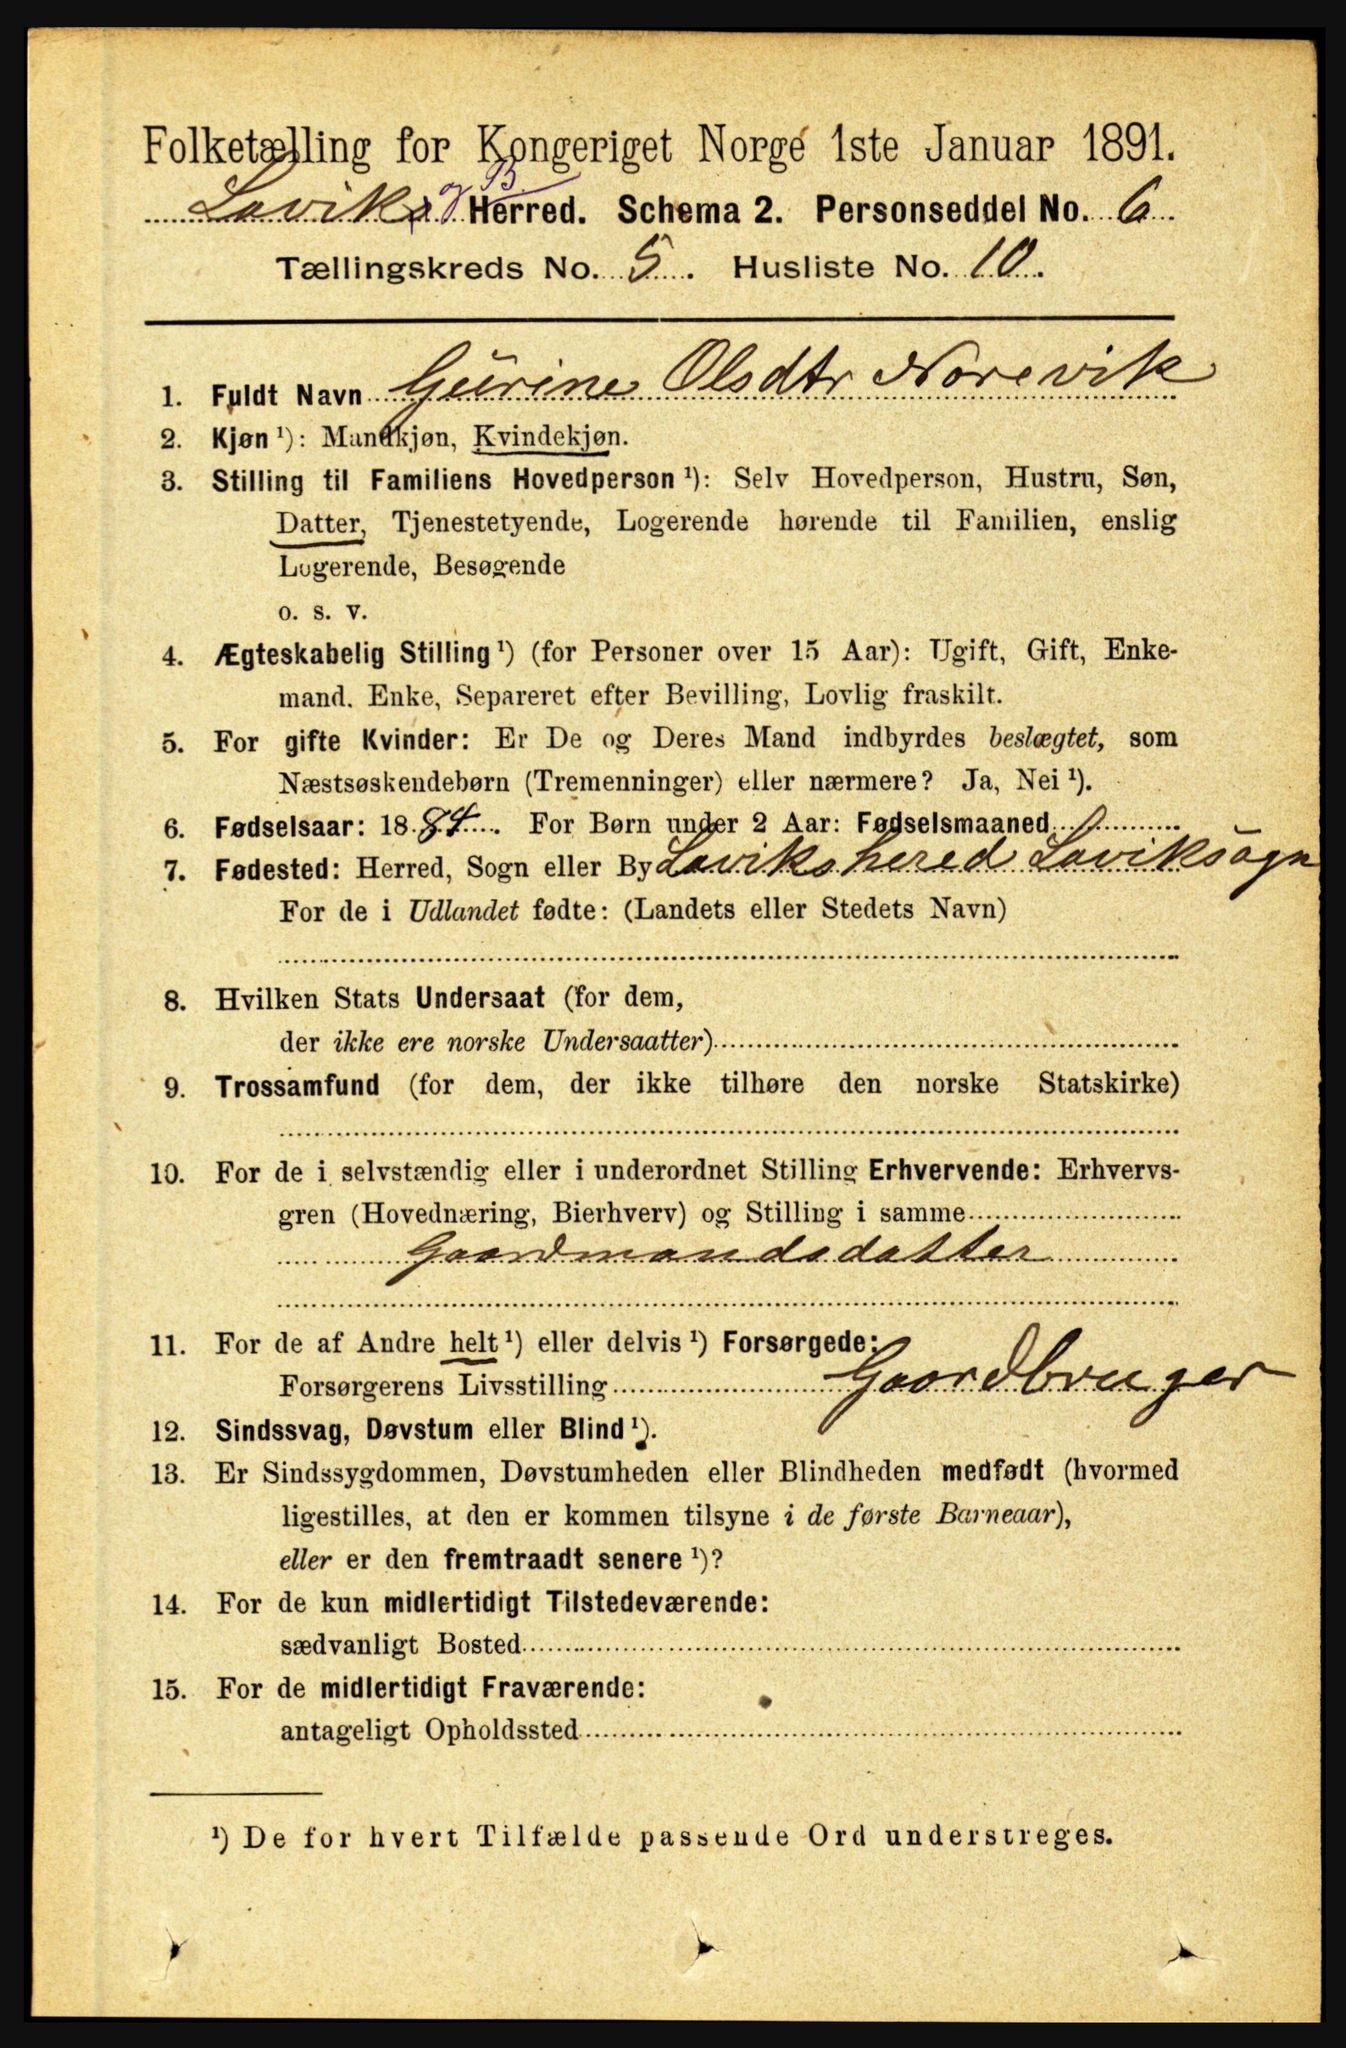 Folketælling for Kongeriget Norge 1ste Januar 1891.
Laviks og B. Herred. Schema 2. Personseddel No. 6
Tællingskreds No. 5. Husliste No. 10.
1. Fuldt Navn Gúrine Olsdtr Norevik
2. Kjøn ¹): Mandkjøn, Kvindekjøn.
3. Stilling til Familiens Hovedperson ¹): Selv Hovedperson, Hustru, Søn,
Datter, Tjenestetyende, Logerende hørende til Familien, enslig
Logerende, Besøgende
o. s. v.
4. Ægteskabelig Stilling ¹) (for Personer over 15 Aar): Ugift, Gift, Enke-
mand, Enke, Separeret efter Bevilling, Lovlig fraskilt.
5. For gifte Kvinder: Er De og Deres Mand indbyrdes beslægtet, som
Næstsøskendebørn (Tremenninger) eller nærmere? Ja, Nei ¹).
6. Fødselsaar: 1884. For Børn under 2 Aar: Fødselsmaaned
7. Fødested: Herred, Sogn eller By Laviks hered Laviksogn
For de i Udlandet fødte: (Landets eller Stedets Navn)
8. Hvilken Stats Undersaat (for dem,
der ikke ere norske Undersaatter)
9. Trossamfund (for dem, der ikke tilhøre den norske Statskirke)
10. For de i selvstændig eller i underordnet Stilling Erhvervende: Erhvervs-
gren (Hovednæring, Bierhverv) og Stilling i samme
Gaardmandsdatter
11. For de af Andre helt ¹) eller delvis ¹) Forsørgede:
Forsørgerens Livsstilling Gaardbruger
12. Sindssvag, Døvstum eller Blind ¹).
13. Er Sindssygdommen, Døvstumheden eller Blindheden medfødt (hvormed
ligestilles, at den er kommen tilsyne i de første Barneaar),
eller er den fremtraadt senere ¹)?
14. For de kun midlertidigt Tilstedeværende:
sædvanligt Bosted
15. For de midlertidigt Fraværende:
antageligt Opholdssted
¹) De for hvert Tilfælde passende Ord understreges.